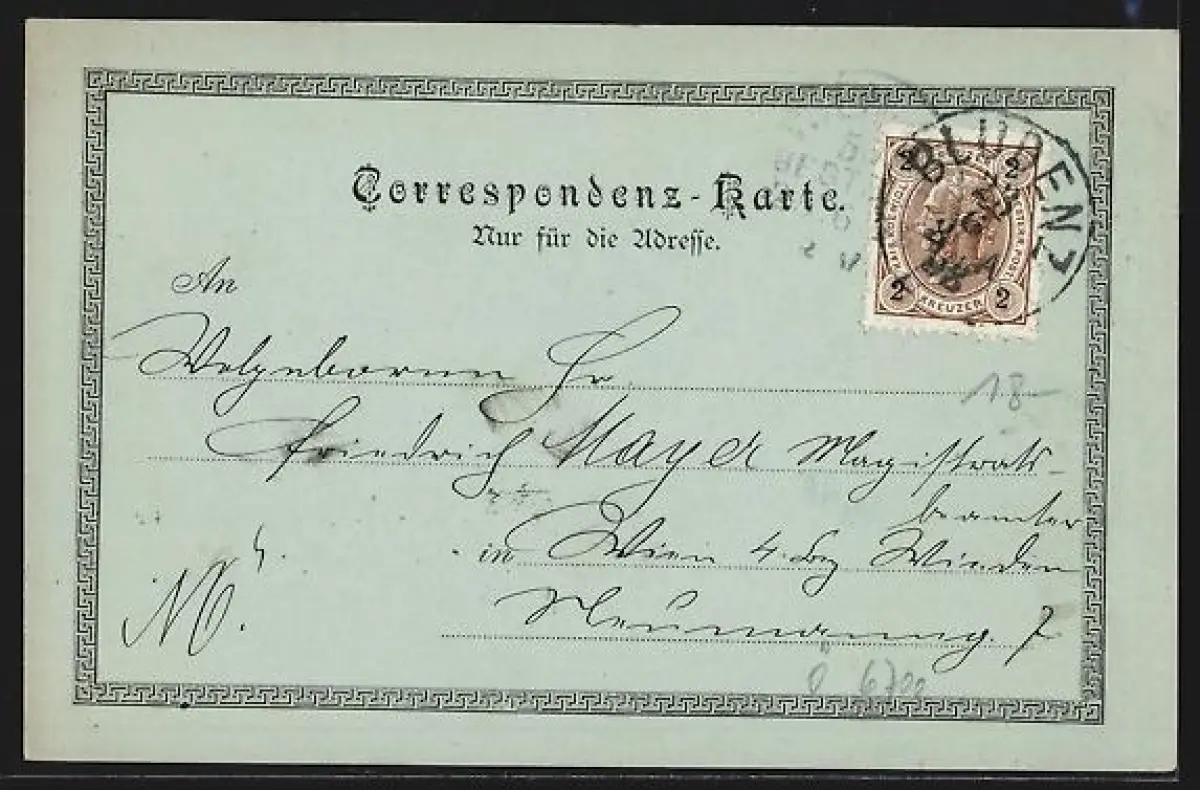 Correspondenz-Karte.
Nur für die Adresse.
BLUDENZ
2 2
KREUZER
2 2
An
Wolgeborenen Hr.
18
Friedrich Mayer Magistrats-
beamter
in Wien 4. Bz Wieden
Neumanng. 7